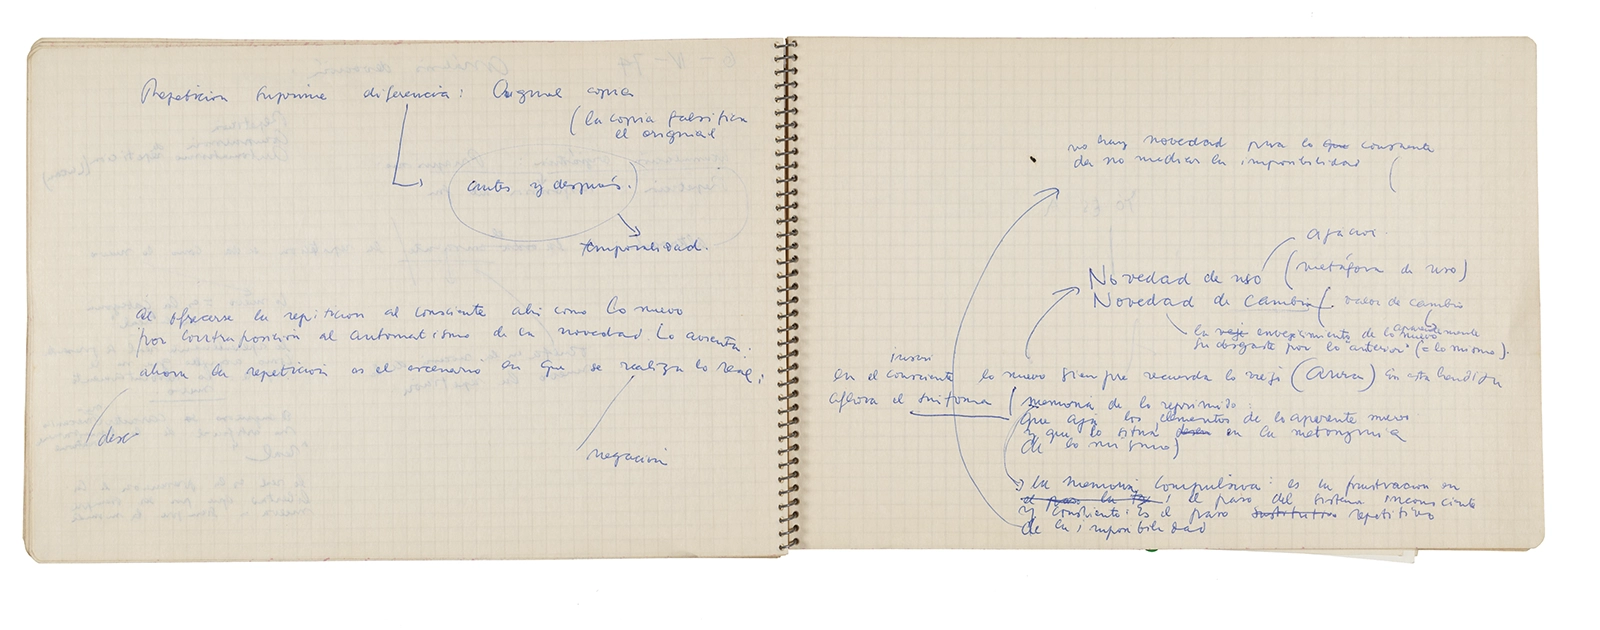 Repeticion supone diferencia: Original copia
(la copia falsifica
el original
antes y después.
temporalidad.
Al ofrecerse la repeticion al consciente ahi como lo nuevo
por contraposición al automatismo de la novedad. Lo
ahora la repetición es el escenario en que se realiza lo real;
desc
negación
no hay novedad para lo que consciente
de no mediar la imposibilidad
(
Novedad de uso (metáfora de uso)
Novedad de cambio (valor de cambio
la veje envejecimiento de lo aparentemente nuevo
su desgaste por lo "anterior" (a lo mismo).
en el consciente lo nuevo siempre recuerda lo viejo (Aura) En esta
aflora el sintoma (memoria de lo reprimido:
que aja los elementos de lo aparente nuevo
y que lo situa en la metonymia
de lo mismo)
la memoria compulsiva: es la frustracion en
el paso la el paso del sistema inconsciente
y consciente: Es el paso sustitutivo repetitivo
de la imposibilidad